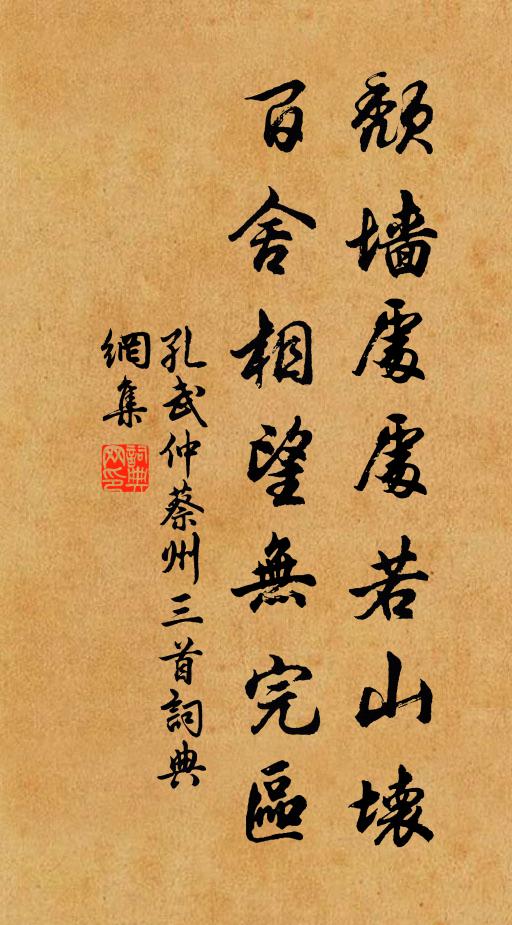 頹墙處處若山壞
百舍相望無完區
孔武仲蔡州三首詞典
網集
詞典
网印